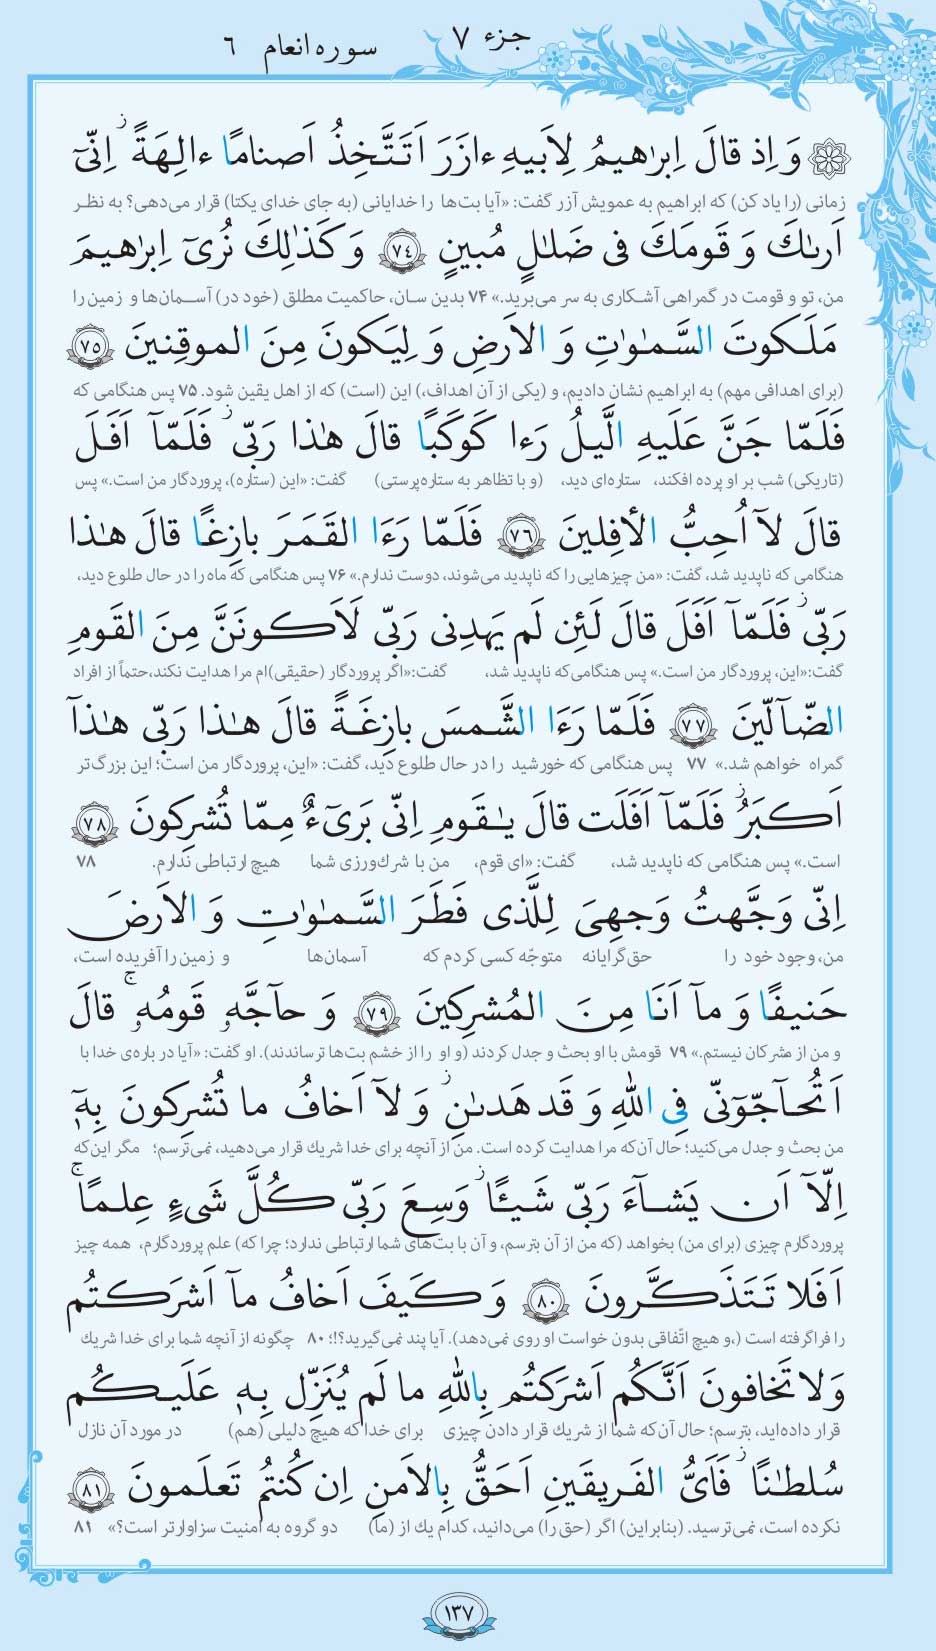 جزء ۷ سوره انعام ۶
وَ اِذ قالَ اِبرٰهیمُ لِاَبیهِ ءازَرَ اَتَتَّخِذُ اَصنامًا ءالِهَةً ۖ اِنّیٓ
زمانی (را یاد کن) که ابراهیم به عمویش آزر گفت: «آیا بت‌ها را خدایانی (به جای خدای یکتا) قرار می‌دهی؟ به نظر
اَرىٰكَ وَ قَومَكَ فی ضَلٰلٍ مُبینٍ ﴿۷۴﴾ وَ كَذٰلِكَ نُریٓ اِبرٰهیمَ
من، تو و قومت در گمراهی آشکاری به سر می‌برید.» ۷۴ بدین سان، حاکمیت مطلق (خود در) آسمان‌ها و زمین را
مَلَكوتَ السَّمٰوٰتِ وَ الاَرضِ وَ لِیَكونَ مِنَ الموقِنینَ ﴿۷۵﴾
(برای اهدافی مهم) به ابراهیم نشان دادیم، و (یکی از آن اهداف،) این (است) که از اهل یقین شود. ۷۵ پس هنگامی که
فَلَمّا جَنَّ عَلَیهِ الَّیلُ رَءا كَوكَبًا قالَ هٰذا رَبّی ۖ فَلَمّآ اَفَلَ
(تاریکی) شب بر او پرده افکند، ستاره‌ای دید، (و با تظاهر به ستاره‌پرستی) گفت: «این (ستاره)، پروردگار من است.» پس
قالَ لآ اُحِبُّ الأفِلینَ ﴿۷۶﴾ فَلَمّا رَءَا القَمَرَ بازِغًا قالَ هٰذا
هنگامی که ناپدید شد، گفت: «من چیزهایی را که ناپدید می‌شوند، دوست ندارم.» ۷۶ پس هنگامی که ماه را در حال طلوع دید،
رَبّی ۖ فَلَمّآ اَفَلَ قالَ لَئِن لَم یَهدِنی رَبّی لَاَكونَنَّ مِنَ القَومِ
گفت:«این، پروردگار من است.» پس هنگامی‌که ناپدید شد، گفت:«اگر پروردگار (حقیقی)ام مرا هدایت نکند،حتماً از افراد
الضّآلّینَ ﴿۷۷﴾ فَلَمّا رَءَا الشَّمسَ بازِغَةً قالَ هٰذا رَبّی هٰذآ
گمراه خواهم شد.» ۷۷ پس هنگامی که خورشید را در حال طلوع دید، گفت: «این، پروردگار من است؛ این بزرگ‌تر
اَكبَرُ ۖ فَلَمّآ اَفَلَت قالَ یٰقَومِ اِنّی بَریٓءٌ مِمّا تُشرِكونَ ﴿۷۸﴾
است.» پس هنگامی که ناپدید شد، گفت: «ای قوم، من با شرك‌ورزی شما هیچ ارتباطی ندارم. ۷۸
اِنّی وَجَّهتُ وَجهِیَ لِلَّذی فَطَرَ السَّمٰوٰتِ وَ الاَرضَ
من، وجود خود را حق‌گرایانه متوجّه کسی کردم که آسمان‌ها و زمین را آفریده است،
حَنیفًا وَ مآ اَنَا مِنَ المُشرِكینَ ﴿۷۹﴾ وَ حآجَّهٗ قَومُهٗ ۚ قالَ
و من از مشرکان نیستم.» ۷۹ قومش با او بحث و جدل کردند (و او را از خشم بت‌ها ترساندند). او گفت: «آیا در باره‌ی خدا با
اَتُحآجّوٓنّی فِی اللّٰهِ وَ قَد هَدىٰنِ ۖ وَ لآ اَخافُ ما تُشرِكونَ بِهٖٓ
من بحث و جدل می‌کنید؛ حال آن‌که مرا هدایت کرده است. من از آنچه برای خدا شریك قرار می‌دهید، نمی‌ترسم؛ مگر این‌که
اِلّآ اَن یَشآءَ رَبّی شَیـًٔا ۖ وَسِعَ رَبّی كُلَّ شَیءٍ عِلمًا ۚ
پروردگارم چیزی (برای من) بخواهد (که من از آن بترسم، و آن با بت‌های شما ارتباطی ندارد؛ چرا که) علم پروردگارم، همه چیز
اَفَلا تَتَذَكَّرونَ ﴿۸۰﴾ وَ كَیفَ اَخافُ مآ اَشرَكتُم
را فراگرفته است (،و هیچ اتّفاقی بدون خواست او روی نمی‌دهد). آیا پند نمی‌گیرید؟!؛ ۸۰ چگونه از آنچه شما برای خدا شریك
وَلا تَخافونَ اَنَّكُم اَشرَكتُم بِاللّٰهِ ما لَم یُنَزِّل بِهٖ عَلَیكُم
قرار داده‌اید، بترسم؛ حال آن‌که شما از شریك قرار دادن چیزی برای خدا که هیچ دلیلی (هم) در مورد آن نازل
سُلطٰنًا ۖ فَاَیُّ الفَریقَینِ اَحَقُّ بِالاَمنِ اِن كُنتُم تَعلَمونَ ﴿۸۱﴾
نکرده است، نمی‌ترسید. (بنابراین) اگر (حق را) می‌دانید، کدام یك از (ما) دو گروه به امنیت سزاوارتر است؟» ۸۱
۱۳۷